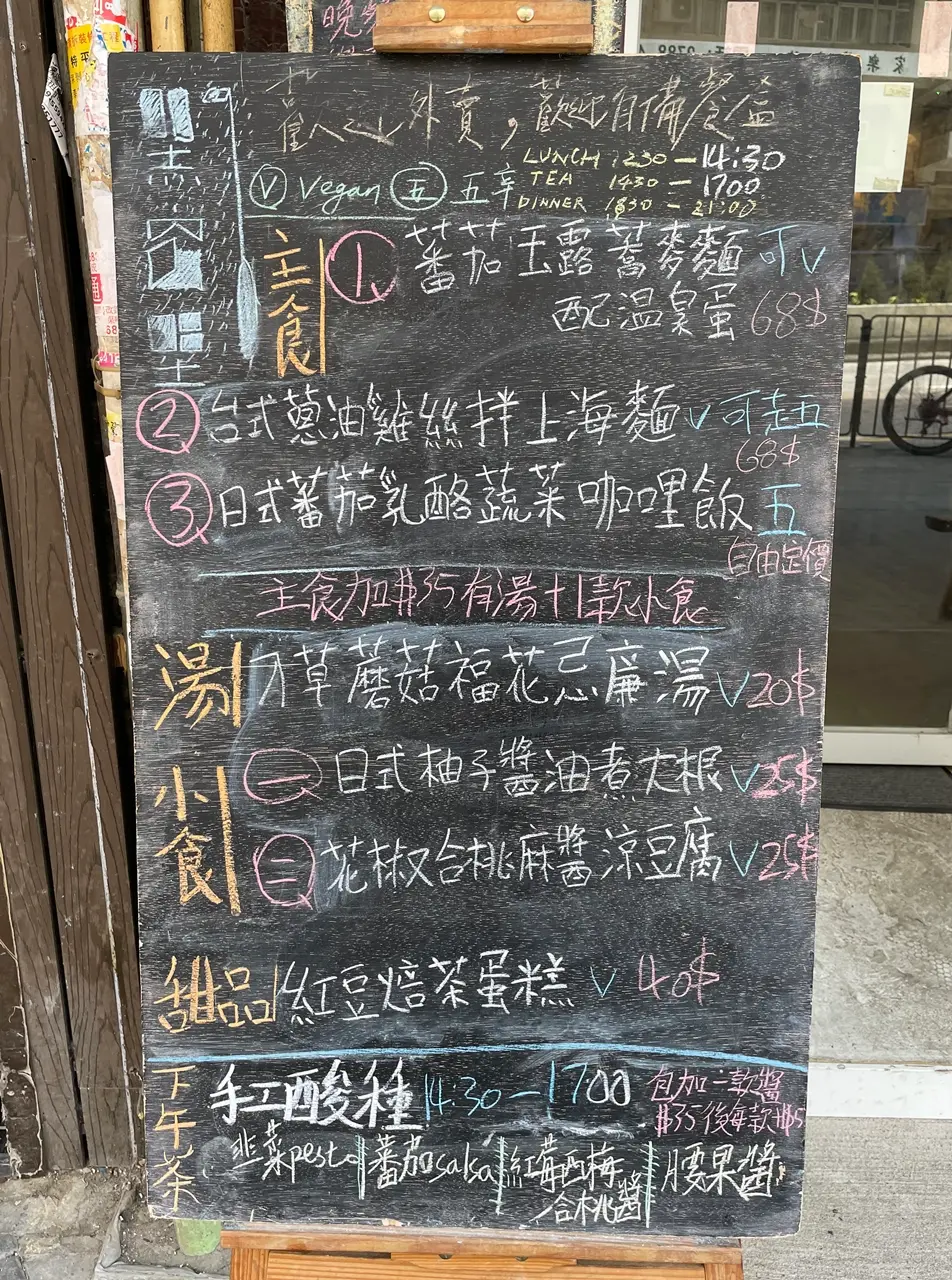 外賣，歡迎自備餐盒
Ⓥ Vegan 五 五辛
LUNCH 1230 — 14:30
TEA 1430 — 1700
DINNER 1830 — 21:00
主食
① 蕃茄玉露蕎麥麵 可V
配溫泉蛋 68$
② 台式蔥油雞絲拌上海麵 V 可走五
68$
③ 日式蕃茄乳酪蔬菜咖哩飯 五
自由定價
主食加$35有湯+1款小食
湯 草蘑菇福花忌廉湯 V 20$
小食
一 日式柚子醬油煮大根 V 25$
二 花椒合桃麻醬涼豆腐 V 25$
甜品 紅豆焙茶蛋糕 V 40$
下午茶
手工酸種 14:30 — 1700
包加一款醬
$35後每款+$5
韭菜pesto
蕃茄salsa
紅莓西梅合桃醬
腰果醬